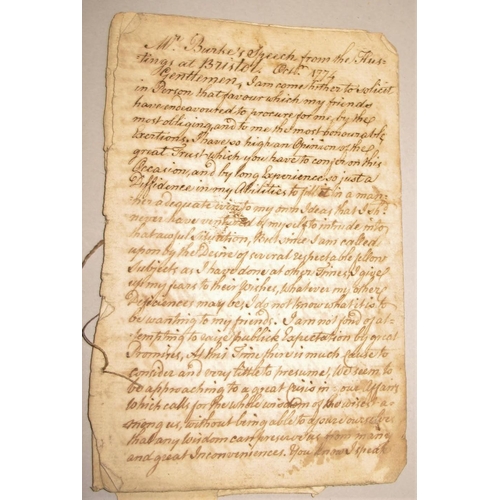 Mr. Burke's Speech from the Hus-
tings at Bristol. Octbr. 1774
Gentlemen, I am come hither to solicit
in Person that favour which my friends
have endeavoured to procure for me, by the
most obliging, and to me the most honourable
Exertions, I have so high an Opinion of the
great Trust which you have to confer on this
Occasion, and by long Experience so just a
Diffidence in my Abilities, to fill it in a man-
ner adequate even to my own Ideas, that I shd.
never have ventured of myself to intrude into
that awful Situation, But since I am called
upon by the Desire of several respectable fellow
Subjects as I have done at other Times, I give
up my fears to their Wishes, Whatever my other
Deficiences may be, I do not know what it is to
be wanting to my friends. I am not fond of at-
tempting to raise publick Expectation by great
Promises, At this Time there is much cause to
consider and very little to presume, We seem to
be approaching to a great crisis in our Affairs
which calls for the whole wisdom of the wisest a-
mong us, without being able to assure ourselves
that any wisdom can preserve us from many
and great Inconveniences. You know I speak